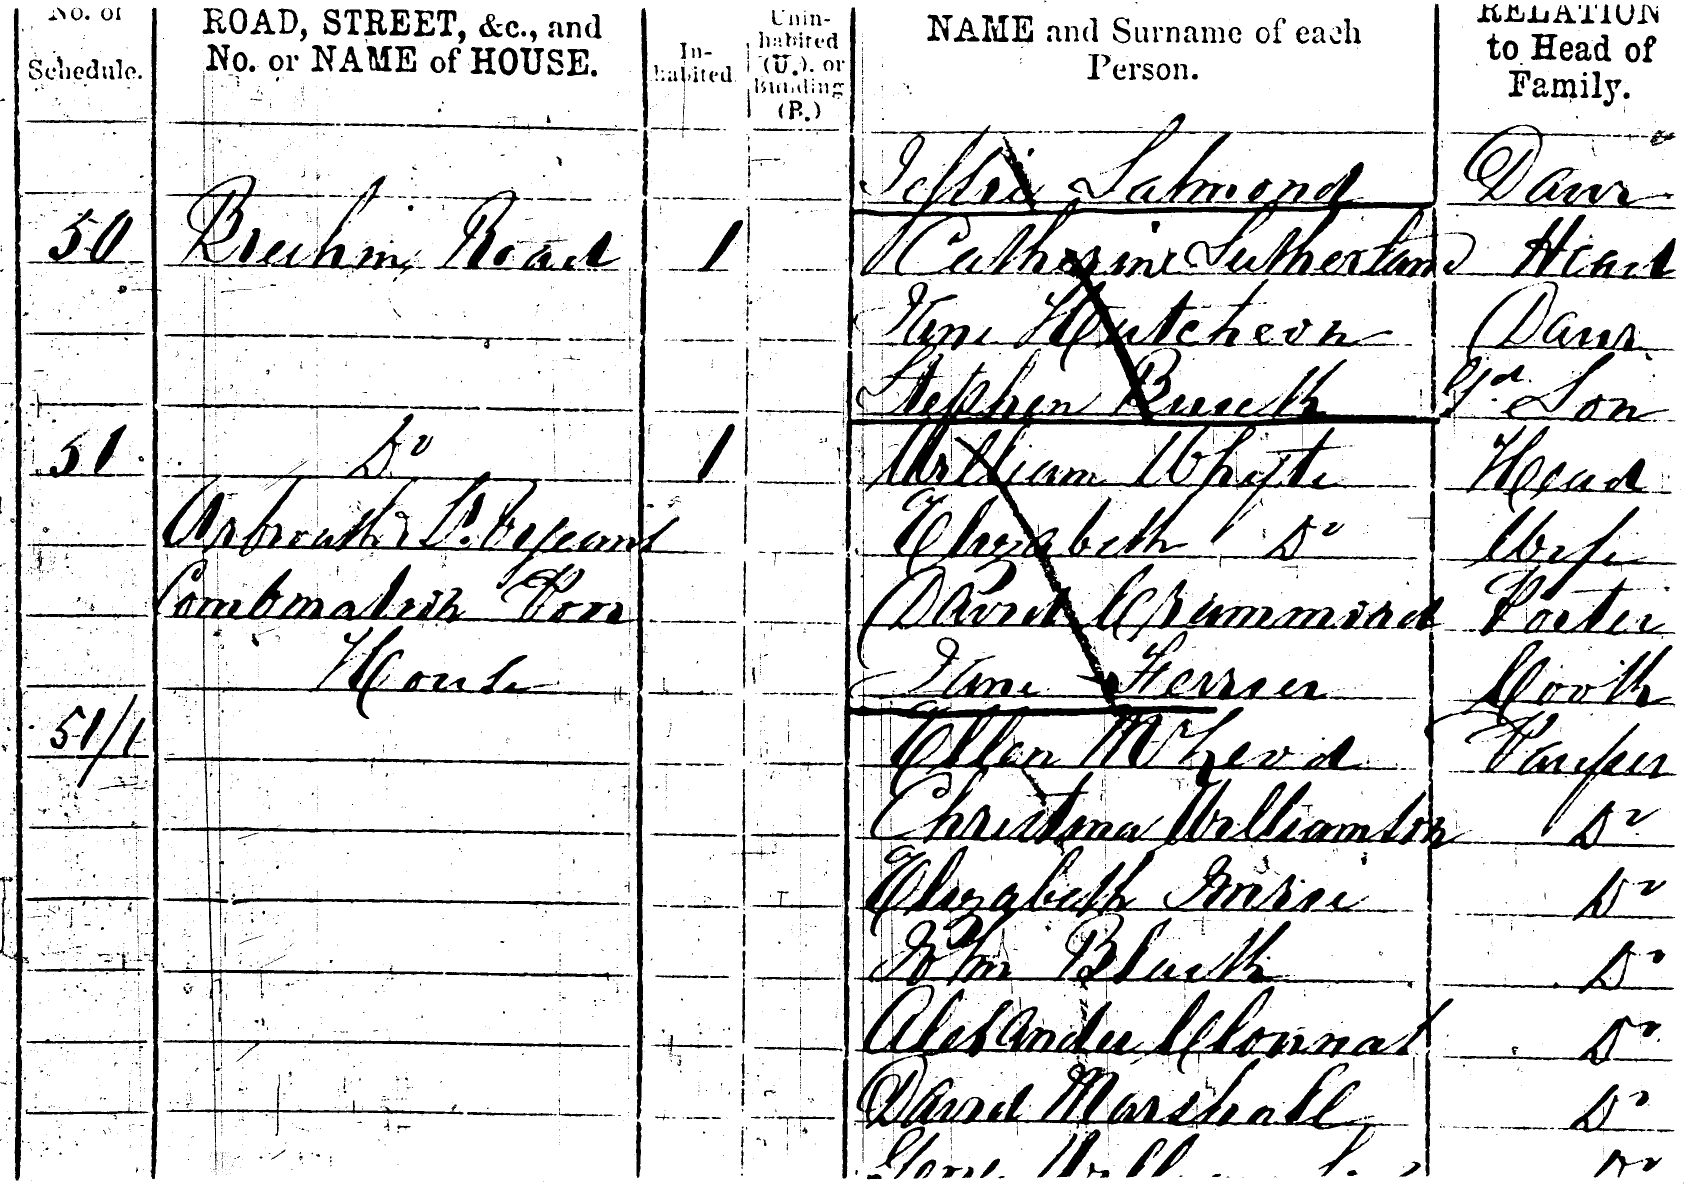 No. of Schedule. ROAD, STREET, &c., and No. or NAME of HOUSE. In-habited Unin-habited (U.), or Building (B.) NAME and Surname of each Person. RELATION to Head of Family.
Jessie Salmond Daur
50 Brechin Road 1 Catherine Sutherland Head
Jane Hutcheon Daur
Stephen Gd. Son
51 Do 1 William Whyte Head
Arbroath & St. Vigeans Elizabeth Do Wife
Combination Poor David Crammond Porter
House Jane Ferrier Cook
51/1 Ellen McLeod Pauper
Christina Williamson Do
Elizabeth Do
John Black Do
Alexander Do
David Marshall Do
Do